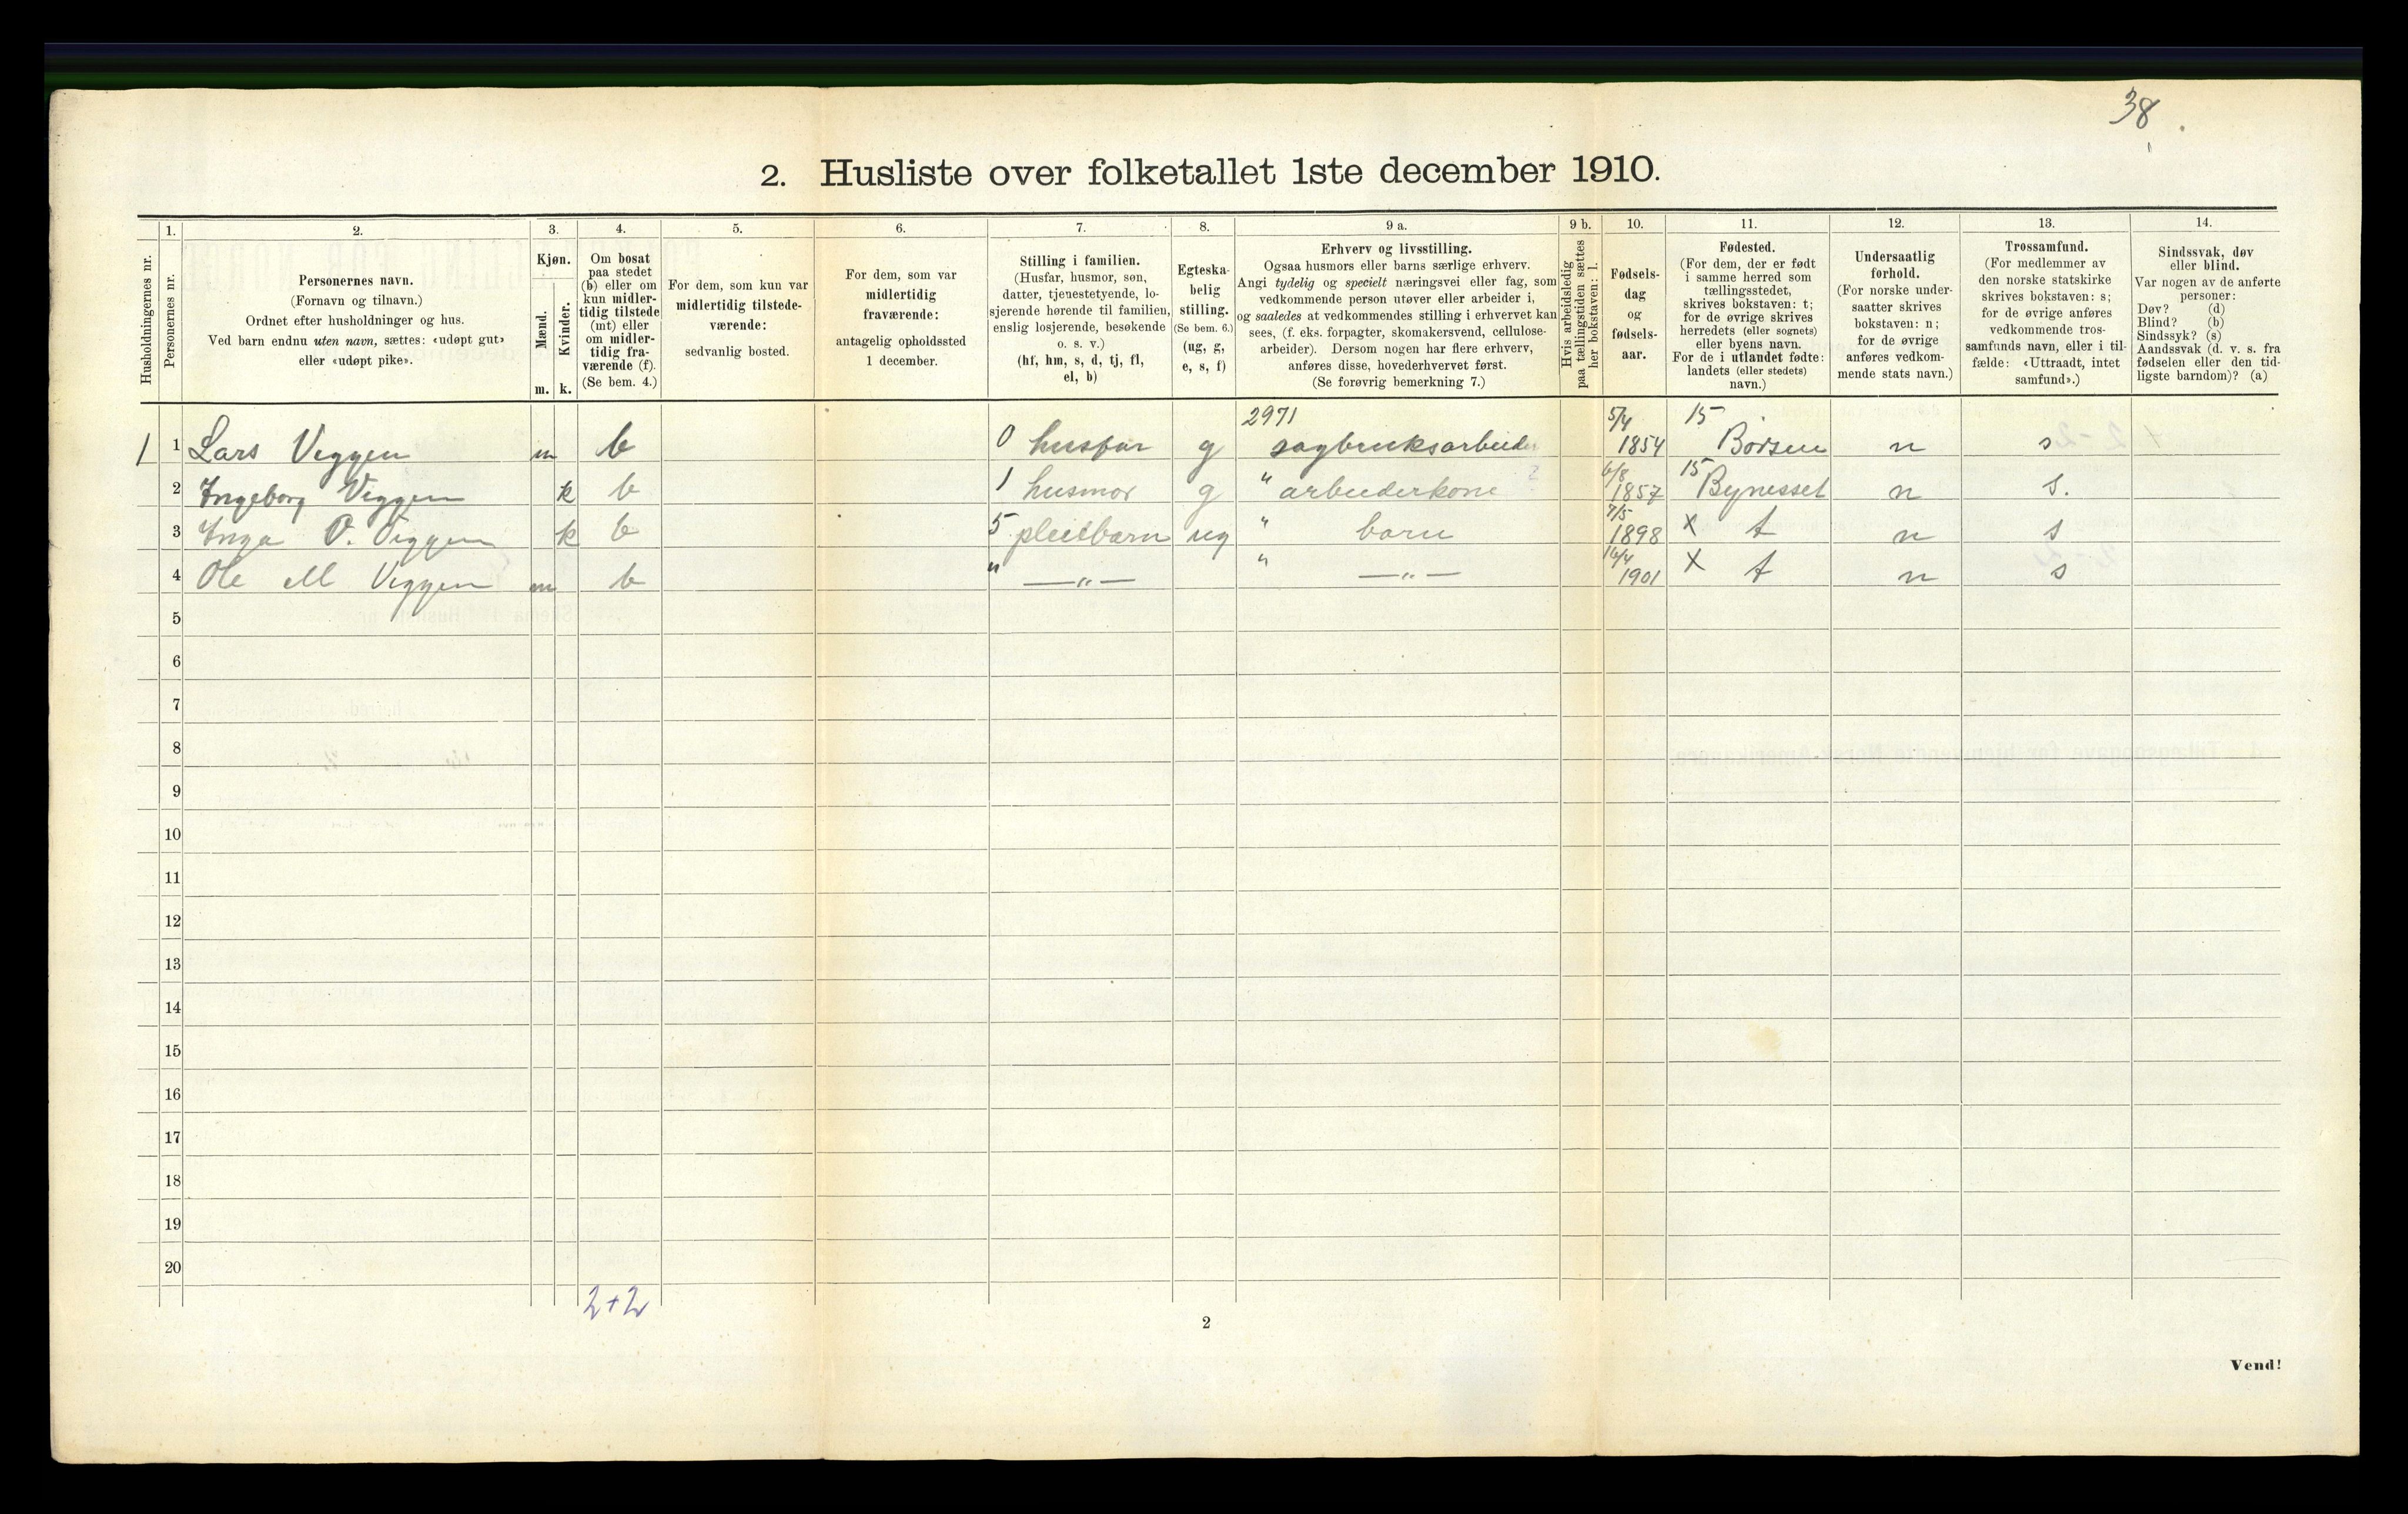 38
2. Husliste over folketallet 1ste december 1910.
Husholdningernes nr.
1.
Personernes nr.
2.
Personernes navn.
(Fornavn og tilnavn.)
Ordnet efter husholdninger og hus.
Ved barn endnu uten navn, sættes: «udøpt gut»
eller «udøpt pike».
3.
Kjøn.
Mænd.
Kvinder.
m. k.
4.
Om bosat
paa stedet
(b) eller om
kun midler-
tidig tilstede
(mt) eller
om midler-
tidig fra-
værende (f).
(Se bem. 4.)
5.
For dem, som kun var
midlertidig tilstede-
værende:
sedvanlig bosted.
6.
For dem, som var
midlertidig
fraværende:
antagelig opholdssted
1 december.
7.
Stilling i familien.
(Husfar, husmor, søn,
datter, tjenestetyende, lo-
sjerende hørende til familien,
enslig losjerende, besøkende
o. s. v.)
(hf, hm, s, d, tj, fl,
el, b)
8.
Egteska-
belig
stilling.
(Se bem. 6.)
(ug, g,
e, s, f)
9 a.
Erhverv og livsstilling.
Ogsaa husmors eller barns særlige erhverv.
Angi tydelig og specielt næringsvei eller fag, som
vedkommende person utøver eller arbeider i,
og saaledes at vedkommendes stilling i erhvervet kan
sees, (f. eks. forpagter, skomakersvend, cellulose-
arbeider). Dersom nogen har flere erhverv,
anføres disse, hovederhvervet først.
(Se forøvrig bemerkning 7.)
9 b.
Hvis arbeidsledig
paa tællingstiden sættes
her bokstaven: l.
10.
Fødsels-
dag
og
fødsels-
aar.
11.
Fødested.
(For dem, der er født
i samme herred som
tællingsstedet,
skrives bokstaven: t;
for de øvrige skrives
herredets (eller sognets)
eller byens navn.
For de i utlandet fødte:
landets (eller stedets)
navn.)
12.
Undersaatlig
forhold.
(For norske under-
saatter skrives
bokstaven: n;
for de øvrige
anføres vedkom-
mende stats navn.)
13.
Trossamfund.
(For medlemmer av
den norske statskirke
skrives bokstaven: s;
for de øvrige anføres
vedkommende tros-
samfunds navn, eller i til-
fælde: «Uttraadt, intet
samfund».)
14.
Sindssvak, døv
eller blind.
Var nogen av de anførte
personer:
Døv? (d)
Blind? (b)
Sindssyk? (s)
Aandssvak (d. v. s. fra
fødselen eller den tid-
ligste barndom)? (a)
2971 5/4 15
1 1 Lars Viggen m b 0 husfar g sagbruksarbeider 1854 Børsen n s
6/8 15
2 Ingeborg Viggen k b 1 husmor g " arbeiderkone 1857 Bynesset n s.
7/5
3 Inga O. Viggen k b 5 pleiebarn ug " barn 1898 x t n s
16/4
4 Ole M Viggen m b " —"— " —"— 1901 x t n s
5
6
7
8
9
10
11
12
13
14
15
16
17
18
19
20
2+2
2
Vend!